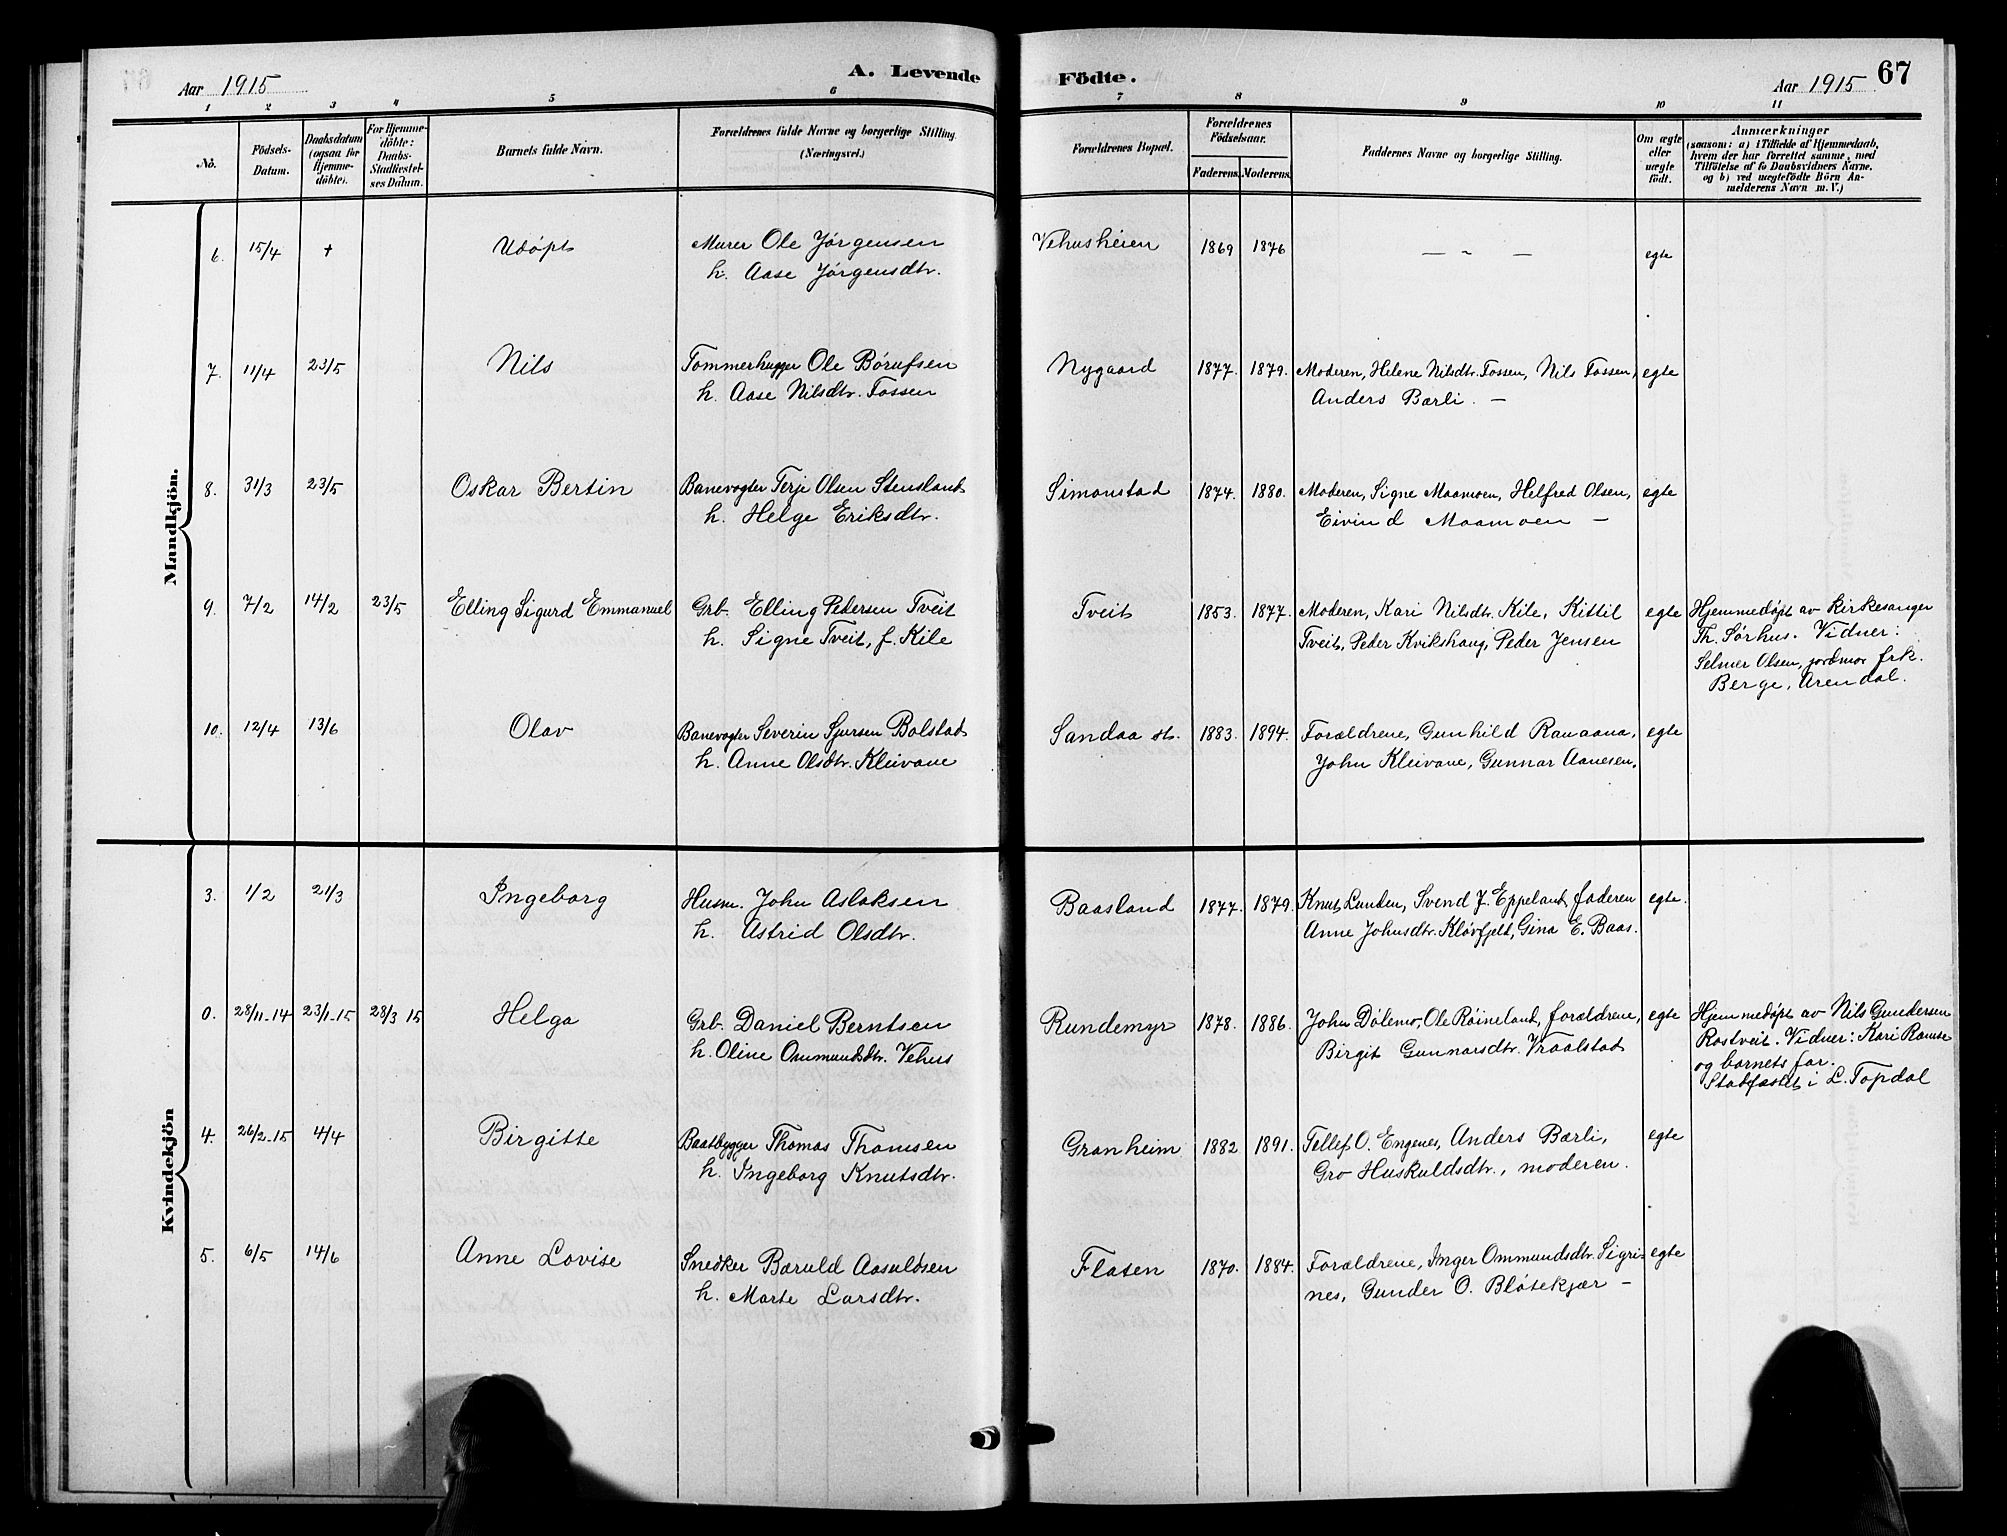 Aar 1915
A. Levende Födte.
Aar 1915
67
1 2 3 4 5 6 7 8 9 10 11
No.
Födsels-Datum.
Daabsdatum (ogsaa for Hjemme-döbte).
For Hjemme-döbte: Daabs-Stadfestel-ses Datum.
Barnets fulde Navn.
Forældrenes fulde Navne og borgerlige Stilling. (Næringsvei.)
Forældrenes Bopæl.
Forældrenes Födselsaar.
Faderens. Moderens.
Faddernes Navne og borgerlige Stilling.
Om ægte eller uægte födt.
Anmærkninger
(saasom: a) i Tilfælde af Hjemmedaab, hvem der har forrettet samme, med Tilföielse af to Daabsvidners Navne, og b) ved uægtefödte Börn An-melderens Navn m. V.)
Mandkjön.
6. 15/4 + Udøpt Murer Ole Jørgensen Vehusheien 1869 1876 — " — egte
h. Aase Jørgensdtr.
7. 11/4 23/5 Nils Tømmerhugger Ole Børufsen Nygaard 1877. 1879. Moderen, Helene Nilsdtr. Fossen, Nils Fossen, egte
h. Aase Nilsdtr. Fossen Anders Bærli. —
8. 31/3 23/5 Oskar Bertin Banevogter Terje Olsen Stensland Simonstad 1874. 1880. Moderen, Signe Maamoen, Helfred Olsen, egte
h. Helge Eriksdtr. Eivind Maamoen —
9. 7/2 14/2 23/5 Elling Sigurd Emmanuel Grb. Elling Pedersen Tveit Tveit 1853. 1877. Moderen, Kari Nilsdtr. Kile, Kittil egte Hjemmedøpt av kirkesanger
h. Signe Tveit, f. Kile Tveit, Peder Kvikshaug, Peder Jensen Th. Sørhus. Vidner:
Selmer Olsen, jordmor frk.
Berge, Arendal.
10. 12/4 13/6 Olav Banevogter Severin Sjursen Bolstad Sandaa st. 1883. 1894. Forældrene, Gunhild Ranaana, egte
h. Anne Olsdtr. Kleivane John Kleivane, Gunnar Aanesen.
Kvindekjön
3. 1/2 21/3 Ingeborg Husm. John Aslaksen Baasland 1877. 1879. Knut Lunden, Svend J. Eppeland, faderen egte.
h. Astrid Olsdtr. Anne Johnsdtr. Kløvfjelt, Gina E. Baas.
0. 28/11-14 23/1-15 28/3 15 Helga Grb. Daniel Berntsen Rundemyr 1878. 1886. John Dølemo, Ole Røineland, forældrene, egte Hjemmedøpt av Nils Gundersen
h. Oline Ommundsdtr. Vehus Birgit Gunnarsdtr. Vraalstad Rostveit. Vidner: Kari Ramse
og barnets far.
Stadfæstet i L. Topdal
4. 26/2-15 4/4 Birgitte Baatbygger Thomas Thomsen Granheim 1882 1891. Tellef O. Engenes, Anders Bærli, egte
h. Ingeborg Knutsdtr. Gro Huskuldsdtr., moderen.
5. 6/5 14/6 Anne Lovise Snedker Bæruld Aasuldsen Flaten 1870. 1884. Forældrene, Inger Ommundsdtr. Sigri- egte
h. Marte Larsdtr. nes, Gunder O. Bløtekjær —